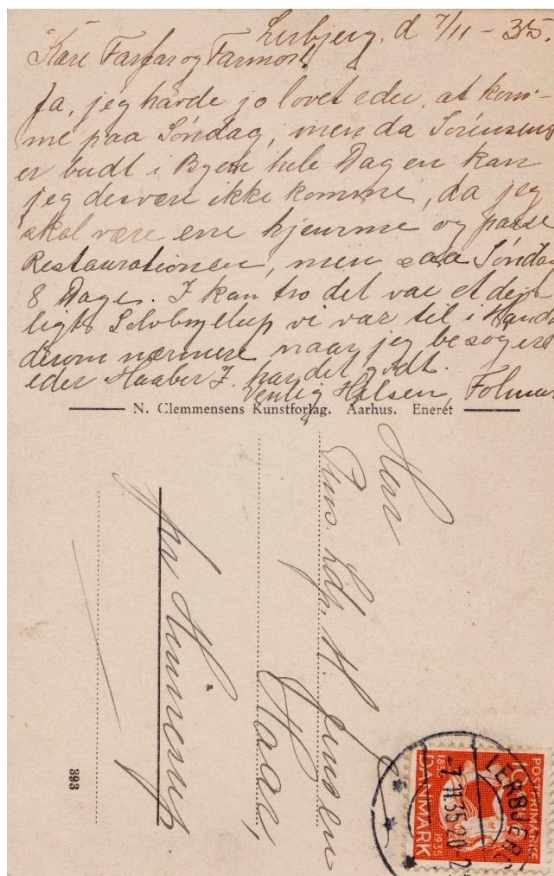 Lerbjerg. d 7/11 - 35.
Kære Farfar og Farmor!
Ja, jeg havde jo lovet eder, at kom-
me paa Søndag, men da Sørensens
er budt i Byen hele Dagen kan
jeg desvære ikke komme, da jeg
skal være ene hjemme og passe
Restaurationen, men saa Søndag
8 Dage. I kan tro det var et dej-
ligt Sølvbryllup vi var til i
derom nærmere naar jeg besøger
eder Haaber I. har det godt.
Venlig Hilsen, Folmer
N. Clemmensens Kunstforlag. Aarhus. Eneret
Herr
M. Jensen
pr Hinnerup
393
POSTFRIMÆRKE
DANMARK
1935
LERBJERG
-7.11.35.20-2